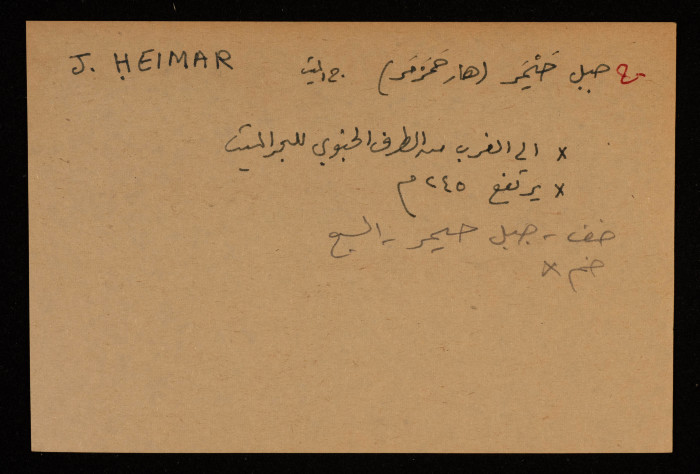 J. HEIMAR
جبل حَيْمَر (هار حَمَرْمَر) ج. الميت
x الى الغرب من الطرف الجنوبي للبحر الميت
x يرتفع ٢٤٥ م
ضف - جبل حيمر - السبع
ضم x